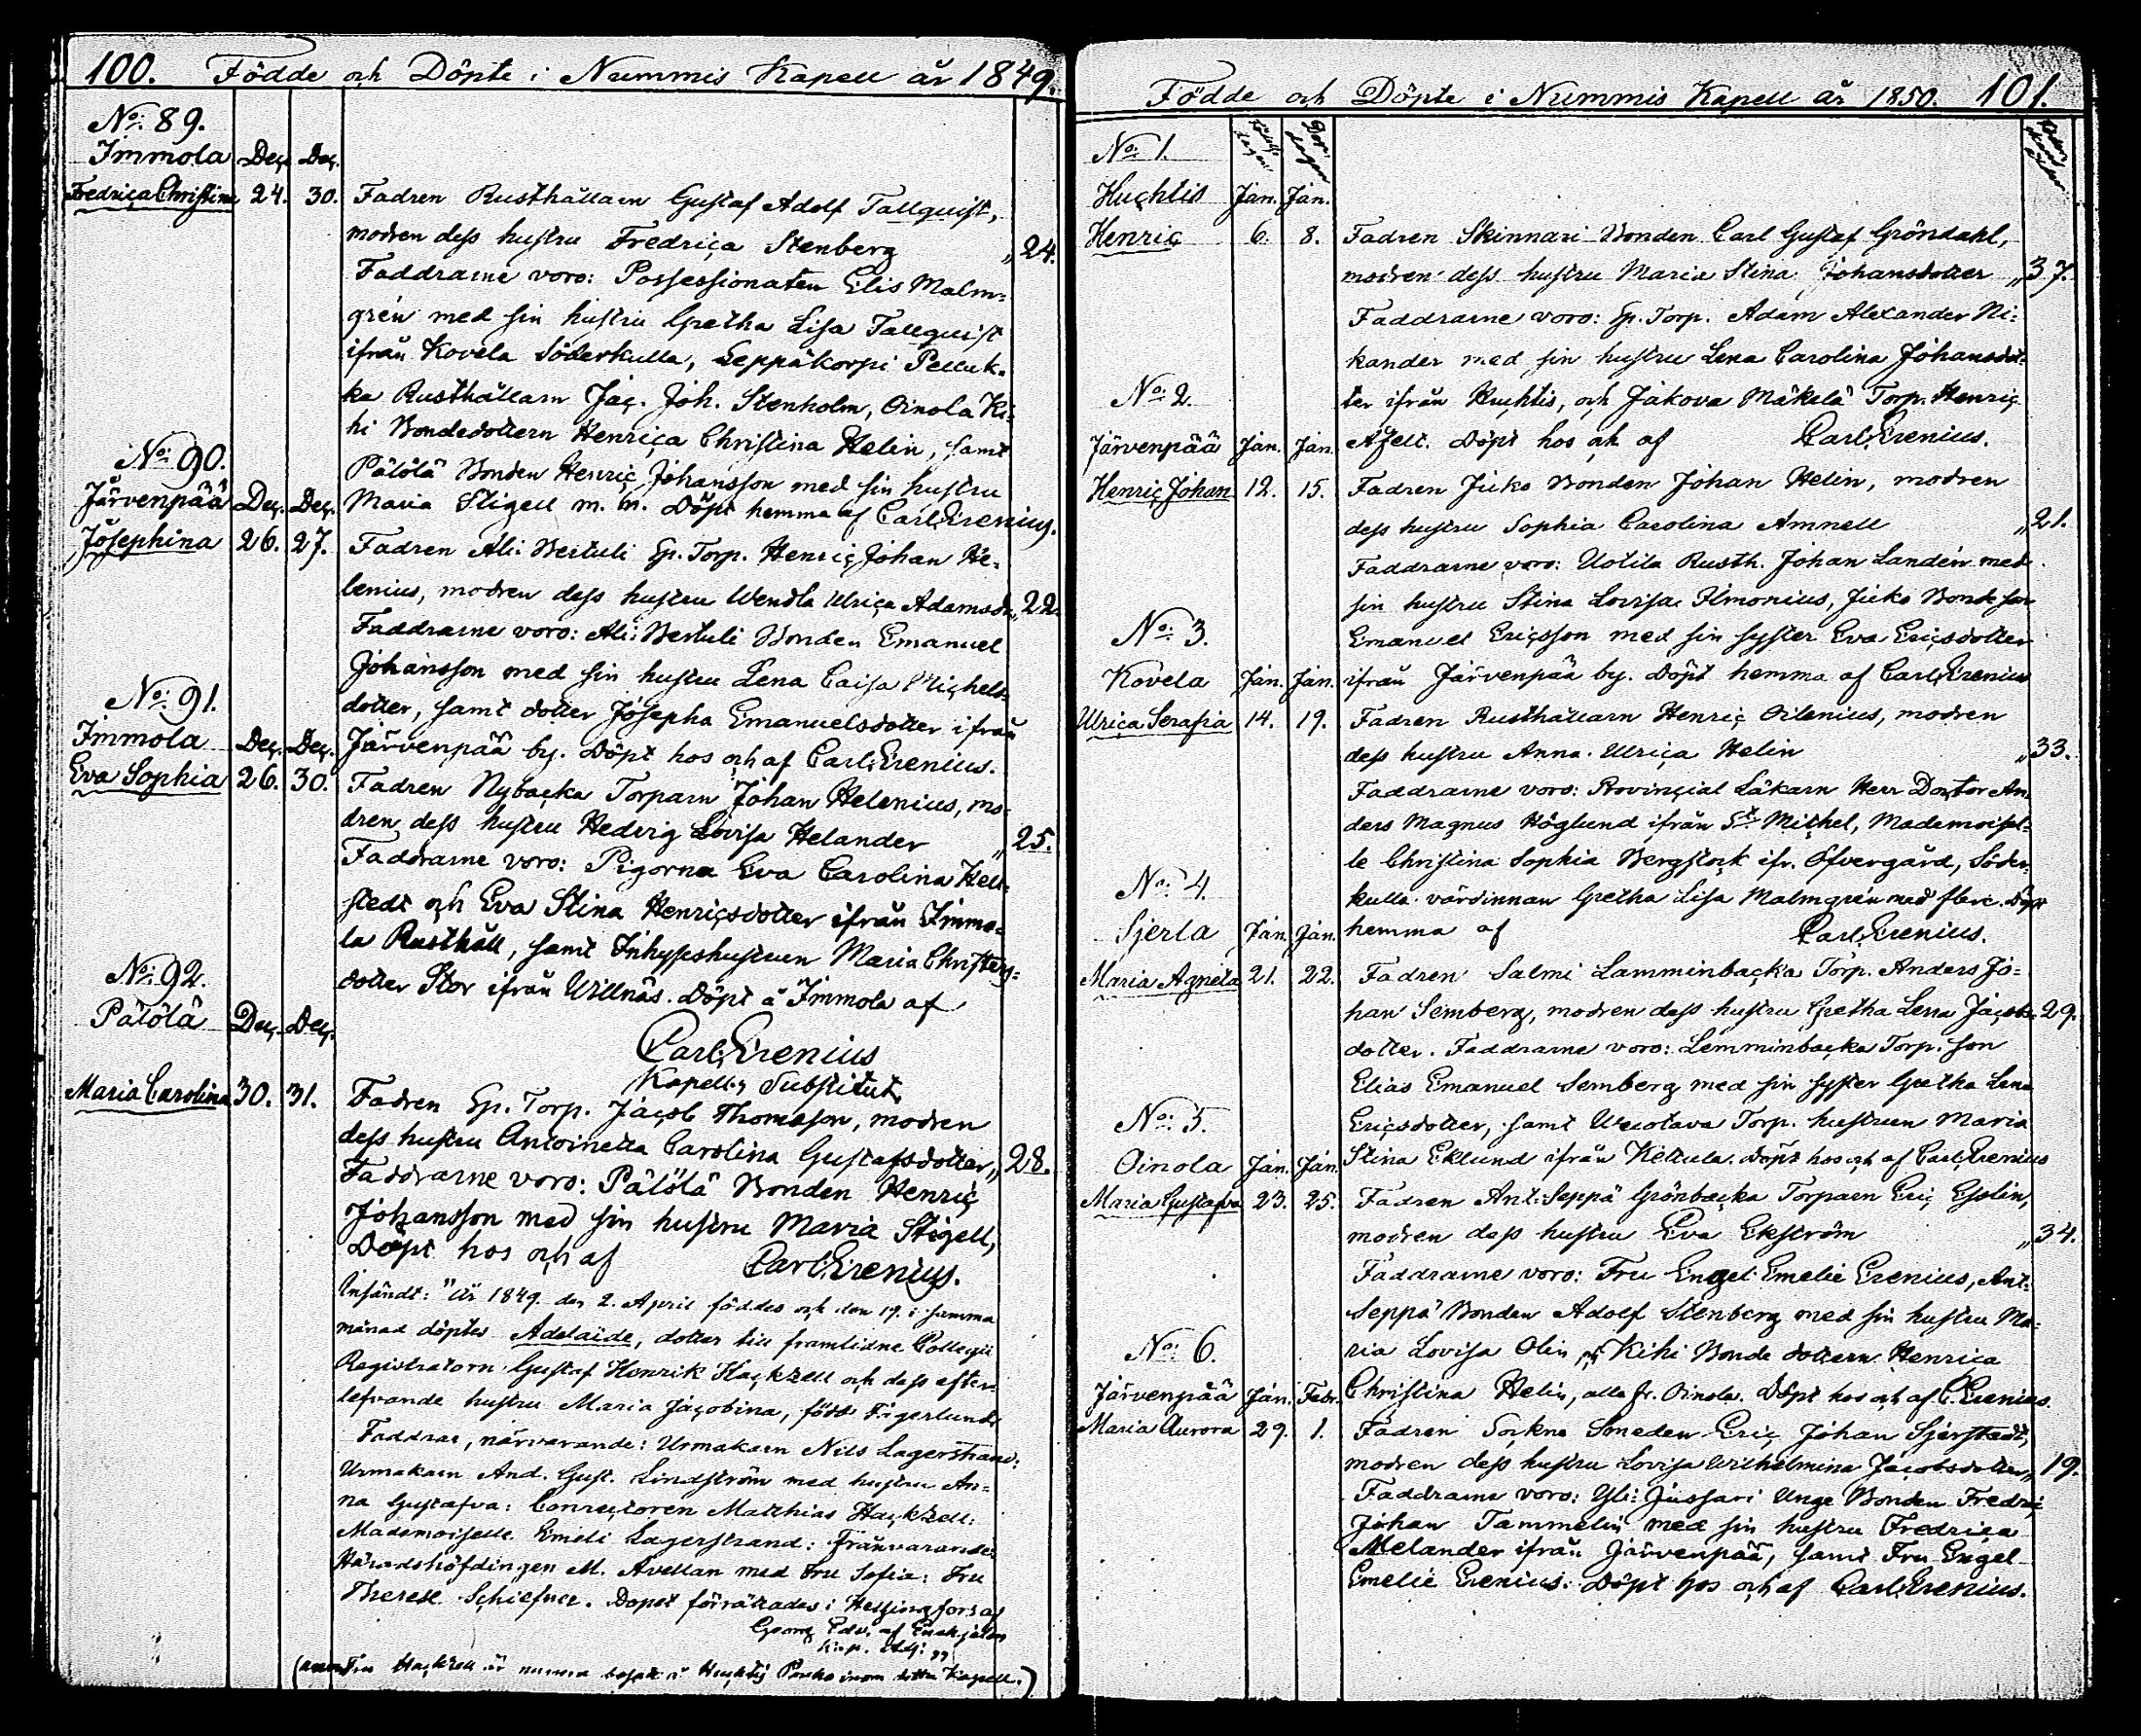 100. Födde och Döpte i Nummis Kapell år 1849.
No: 89.
Immola Dec. Dec.
Fredrica Christina 24. 30. Fadren Rusthållarn Gustaf Adolf Tallquist,
modren dess hustru Fredrica Stenberg „ 24.
Faddrarne voro: Possessionaten Elis Malm=
grén med sin hustru Gretha Lisa Tallquist
ifrån Kovela Söderkulla, Leppäkorpi Pelluk=
ka Rusthållarn Jac. Joh. Stenholm, Oinola Ki=
hi Bondedottern Henrica Christina Helin, samt
Pätölä Bonden Henric Johansson med sin hustru
Maria Stigell m. m. Döpt hemma af Carl Erenius.
No: 90.
Järvenpää Dec. Dec.
Josephina 26. 27. Fadren Ali: Bertuli Sp. Torp. Henric Johan He=
lenius, modren dess hustru Wendla Ulrica Adamsdr. „ 22.
Faddrarne voro: Ali: Bertuli Bonden Emanuel
Johansson med sin hustru Lena Caisa Michels=
dotter, samt dotter Josepha Emanuelsdotter ifrån
Järvenpää by. Döpt hos och af Carl Erenius.
No: 91.
Immola Dec. Dec.
Eva Sophia 26. 30. Fadren Nybacka Torparn Johan Helenius, mo=
dren dess hustru Hedvig Lovisa Helander „ 25.
Faddrarne voro: Pigorna Eva Carolina Hell=
stedt och Eva Stina Henricsdotter ifrån Immo=
la Rusthåll, samt Inhyseshustrun Maria Christers=
dotter Stor ifrån Willnäs. Döpt å Immola af
Carl Erenius
Kapells Substitut.
No: 92.
Pätölä Dec. Dec.
Maria Carolina 30. 31. Fadren Sp. Torp. Jacob Thomasson, modren
dess hustru Antoinetta Carolina Gustafsdotter „ 28.
Faddrarne voro: Pätölä Bonden Henric
Johansson med sin hustru Maria Stigell,
Döpt hos och af Carl Erenius.
Insändt: "År 1849. den 2. April föddes och den 19. i samma
månad döptes Adelaide, dotter till framlidne Collegii
Registratorn Gustaf Henrik Hackzell och dess efter=
lefvande hustru Maria Jacobina, född Fagerlund.
Faddrar, närvarande: Urmakarn Nils Lagerstrand:
Urmakarn And. Gust. Lindström med hustru An=
na Gustafva: Conrectoren Matthias Hackzell:
Mademoiselle Emeli Lagerstrand: Frånvarande:
Häradshöfdingen M. Avellan med Fru Sofia: Fru
Therese Schiefner. Dopet förrättades i Helsingfors af
Georg Edv. af
Fru Hackzell är numera bosatt i Huchtis inom detta Kapell.)
Födde och Döpte i Nummis Kapell år 1850. 101.
No: 1.
Huchtis Jan. Jan.
Henric 6. 8. Fadren Skinnari Bonden Carl Gustaf Gröndahl,
modren dess hustru Maria Stina Johansdotter „ 37.
Faddrarne voro: Sp. Torp. Adam Alexander Ni=
kander med sin hustru Lena Carolina Johansdot=
ter ifrån Huchtis, och Jakova Mäkelä Torp. Henric
Afzelt. Döpt hos och af Carl Erenius.
No: 2.
Järvenpää Jan. Jan.
Henric Johan 12. 15. Fadren Juko Bonden Johan Helin, modren
dess hustru Sophia Carolina Amnell „ 21.
Faddrarne voro: Uotila Rusth. Johan Landén med
sin hustru Stina Lovisa Ilmonius, Juko Bondeson
Emanuel Ericsson med sin syster Eva Ericsdotter
ifrån Järvenpää by. Döpt hemma af Carl Erenius
No: 3.
Kovela Jan. Jan.
Ulrica Serafia 14. 19. Fadren Rusthållarn Henric Oilenius, modren
dess hustru Anna Ulrica Helin „ 33.
Faddrarne voro: Provincial Läkarn Herr Doctor An=
ders Magnus Höglund ifrån St Michel, Mademoisel=
le Christina Sophia Bergstock ifr. Öfvergård, Söder=
kulla värdinnan Gretha Lisa Malmgrén med flere. Döpt
hemma af Carl Erenius.
No: 4.
Sjerla Jan. Jan.
Maria Agneta 21. 22. Fadren Salmi Lamminbacka Torp. Anders Jo=
han Semberg, modren dess hustru Gretha Lena Jacobs= 29.
dotter. Faddrarne voro: Lemminbacka Torp. son
Elias Emanuel Semberg med sin syster Gretha Lena
Ericsdotter, samt Torp. hustrun Maria
Stina Eklund ifrån Kettula. Döpt hos och af Carl Erenius
No: 5.
Oinola Jan. Jan.
Maria Gustafva 23. 25. Fadren Ant: Seppä Grönbacka Torparn Eric Eslin,
modren dess hustru Eva Ekström „ 34.
Faddrarne voro: Fru Engel Emelie Erenius, Ant:
Seppä Bonden Adolf Stenberg med sin hustru Ma=
ria Lovisa Olin och Kihi Bonde dottern Henrica
Christina Helin, alla fr. Oinola. Döpt hos och af C. Erenius.
No: 6.
Järvenpää Jan. Febr.
Maria Aurora 29. 1. Fadren Sockne Smeden Eric Johan Sjerstedt,
modren dess hustru Lovisa Wilhelmina Jacobsdotter „ 19.
Faddrarne voro: Yli: Jussari Unge Bonden Fredric
Johan Tammelin med sin hustru Fredrica
Melander ifrån Järvenpää, samt Fru Engel
Emelie Erenius. Döpt hos och af Carl Erenius.